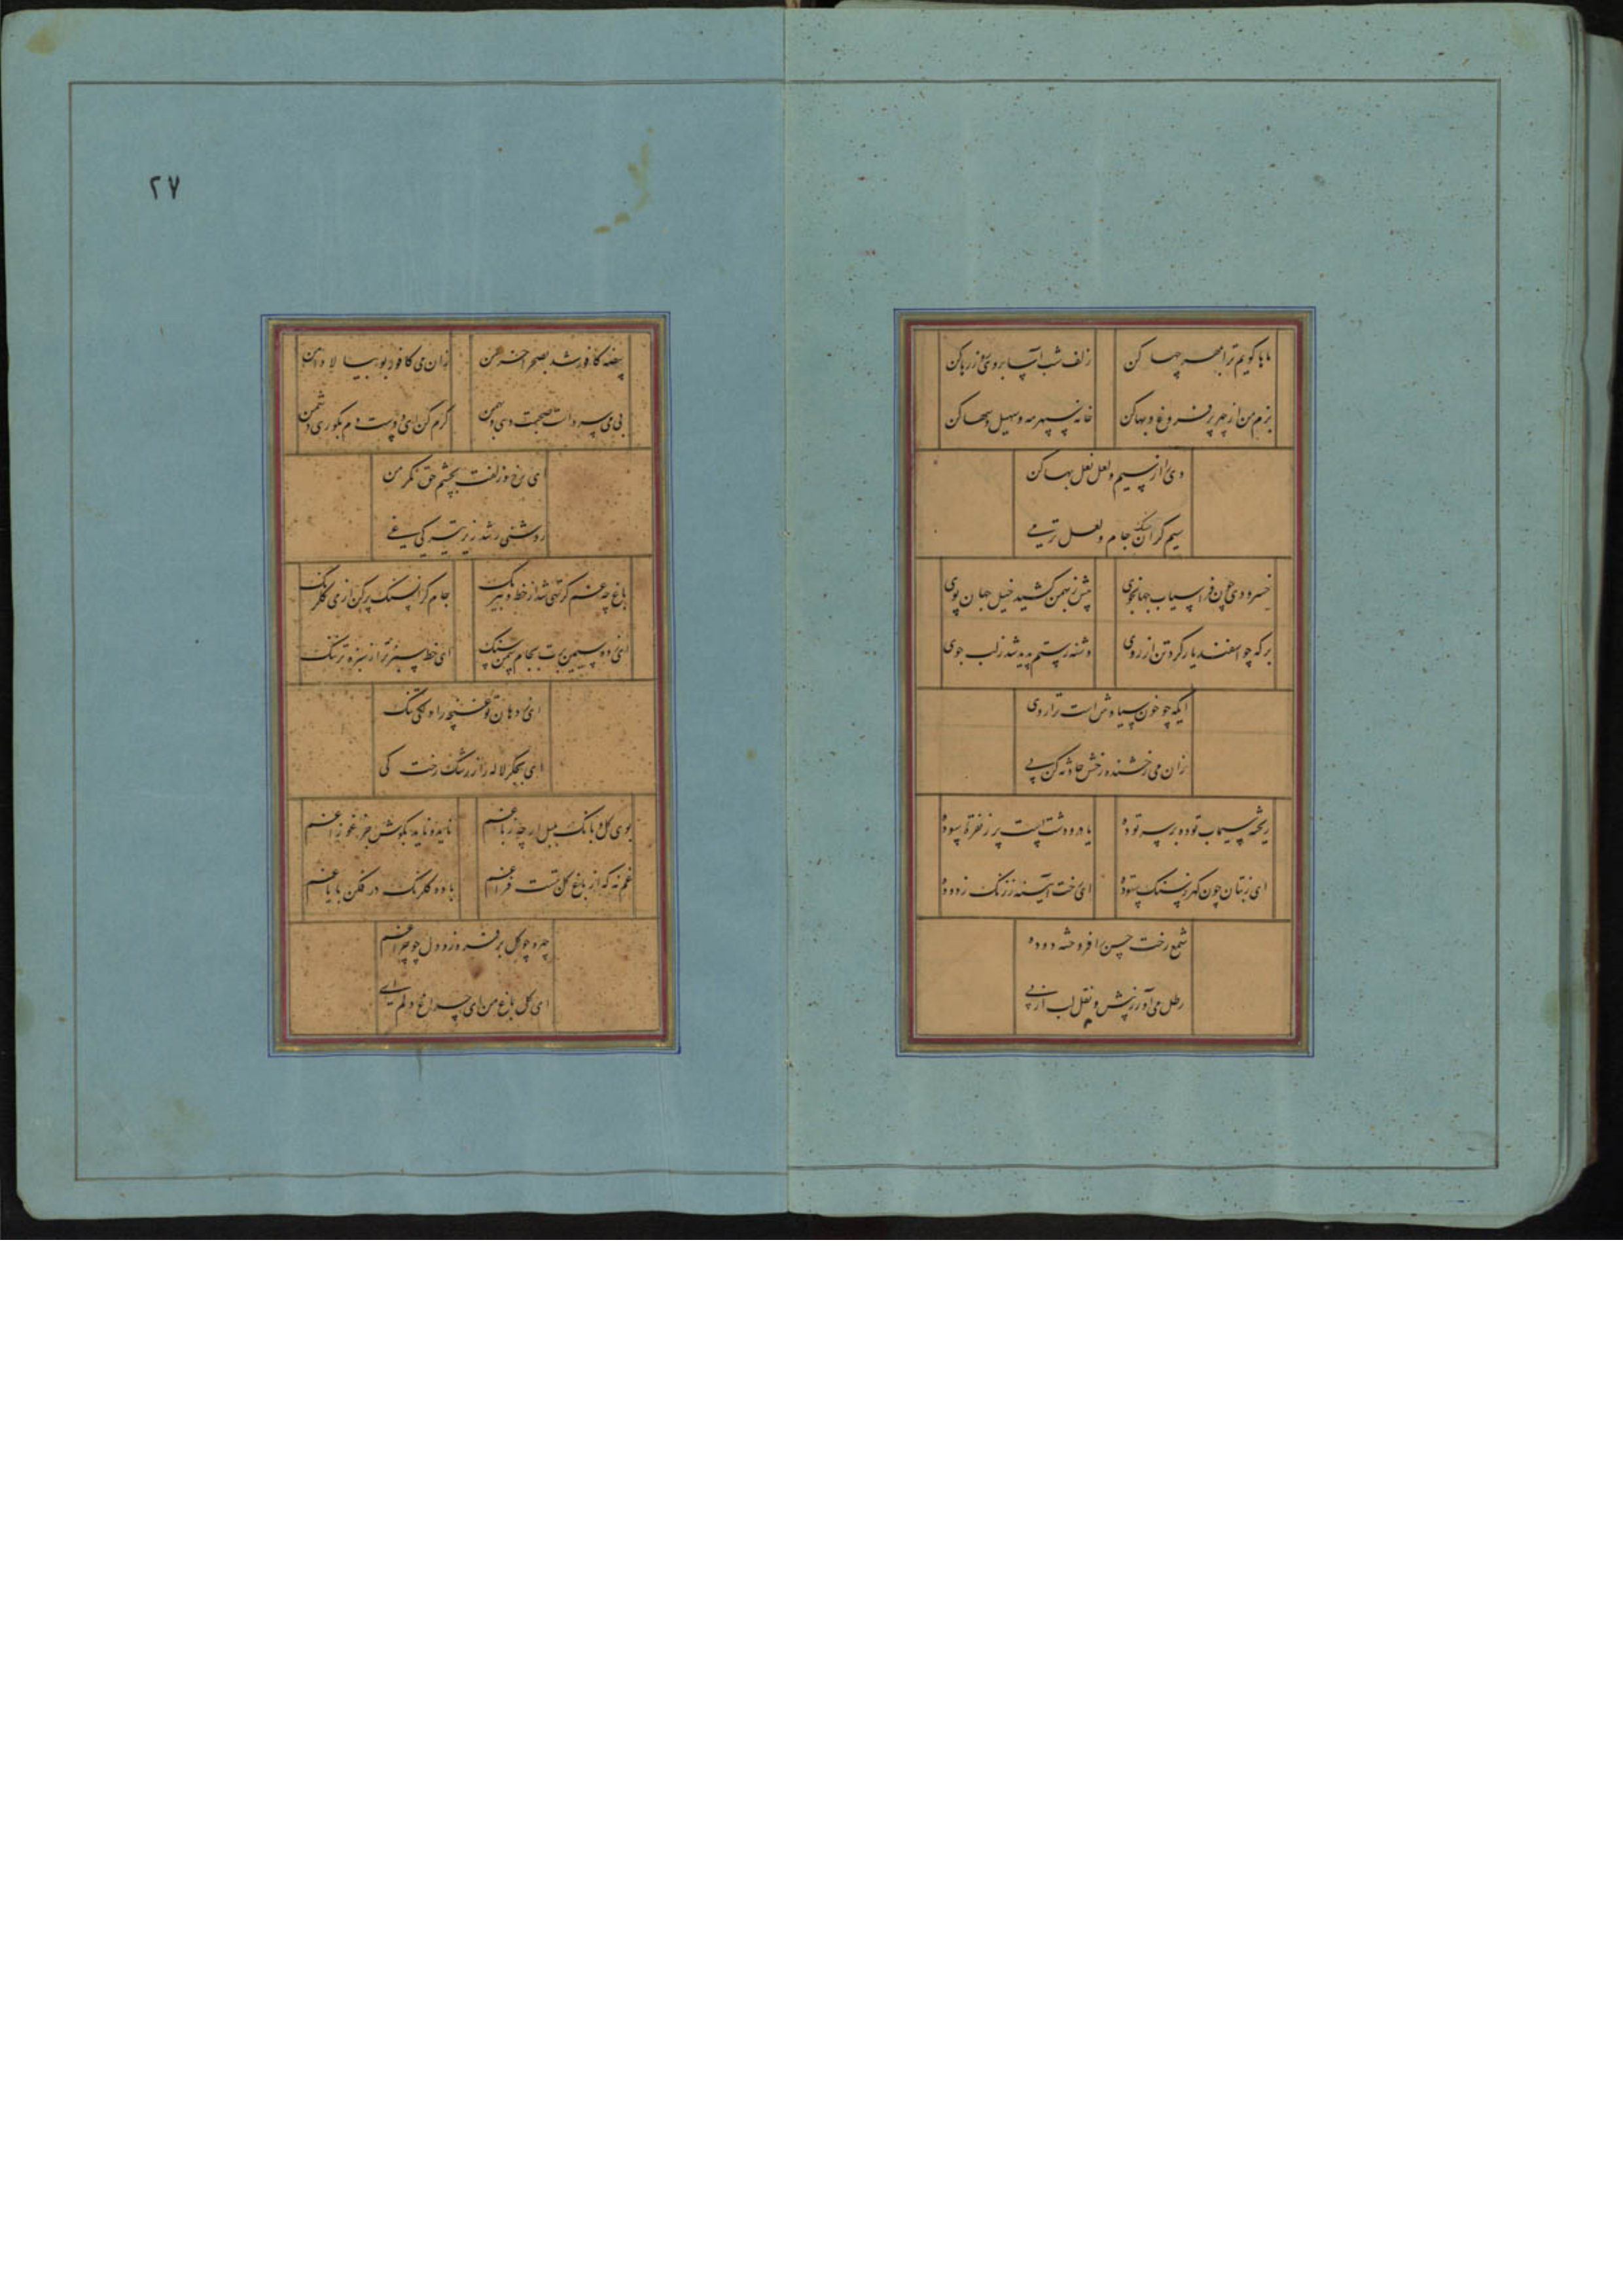 ماها گویم ترا بمهر چها کن
زلف شب آسا بروی روز رها کن
بزم من از چهر پر فروغ و بها کن
خانه سپهر مه و سهیل و سها کن
دی را از سیم و لعل نعل بها کن
سیم گران سنگ جام و لعل تر می
خسرو دی چون فراسیاب جهانجوی
پیش ز بهمن کشید خیل جهان پوی
برکه چو اسفندیار کرد تن از روی
دشنه رستم پدید شد ز لب جوی
ایکه چو خون سیاوش است ترا روی
زان می رخشنده رخش حادثه کن پی
ریخته سیماب توده بر سر توده
یا در و دشت است پر ز نقره سوده
ای ز بتان چون گهر ز سنگ ستوده
ای رخت آیینه ز زنگ زدوده
شمع رخت حسن را فروخته دوده
رطل می آور ز پیش و نقل لب از پی
۲۷
بیضه کافور شد بصحرا خرمن
زان می کافور بو بیا لا دامن
بی می سرد است صحبت دی و بهمن
گرم کن ای دوست دم بکوری دشمن
ای رخ و زلفت بچشم حق نگر من
روشنی رشد زیر تیرگی غی
باغ چه غم گر تهی شد از خط و نیرنگ
جام گران سنگ پر کن از می گلرنگ
ای زده سیمین برت بجام سمن سنگ
ای خط سبزت تر از سبزه تر ننگ
ای ز دهان تو غنچه را دلکی تنگ
ای بجگر لاله را ز رشک رخت کی
بوی گل و بانگ بلبل ار چه ز باغم
نامده ناید بگوش جز غو زاغم
غم نه که از باغ گل تست فراغم
باده گلرنگ در فکن به ایاغم
چهره چو گل برفروز و دل چو چراغم
ای گل باغ من ای چراغ دلم ای